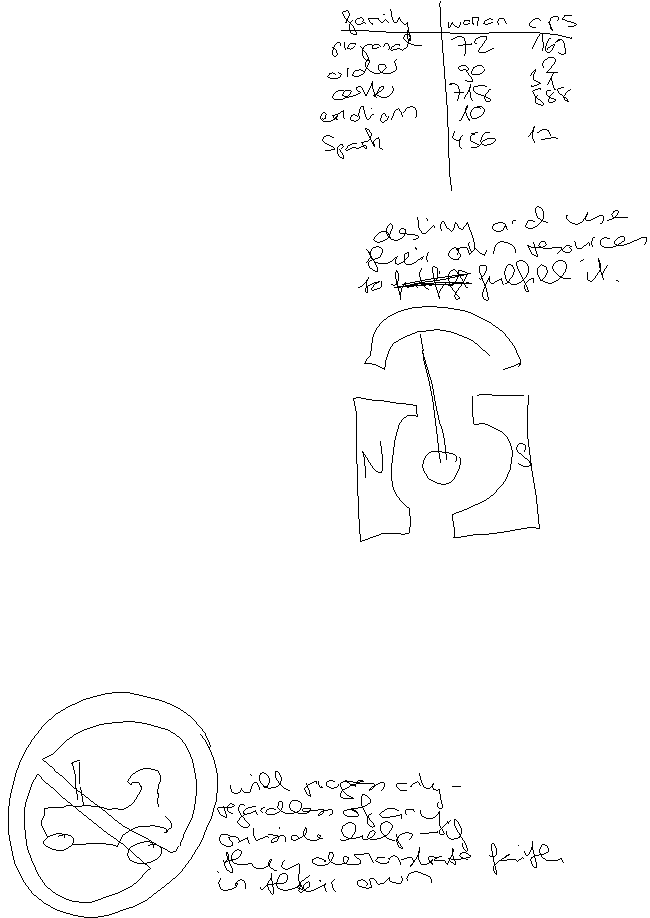 family woman cps
proposal 72 169
order 90 2
caste 718 31
emotions 10 888
Spark 456 12
destiny and use
their own resources
to fulfill it.
N S
will progress only -
regardless of any
outside help - if
they demonstrate faith
in their own